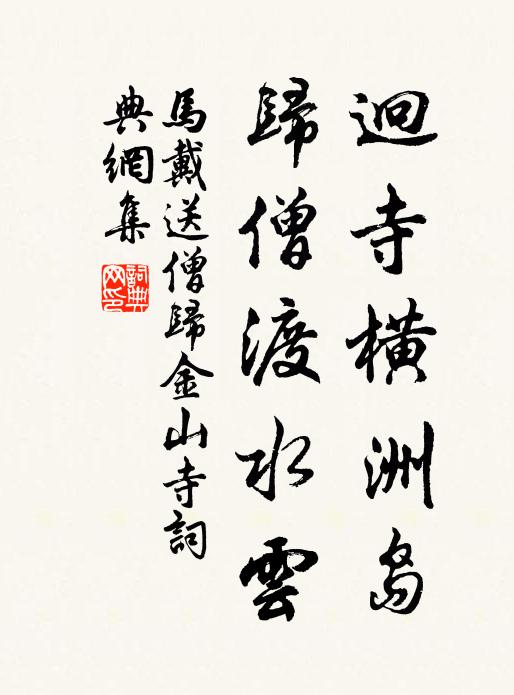 迥寺橫洲島
歸僧渡水雲
馬戴送僧歸金山寺詞
典網集
詞典網印